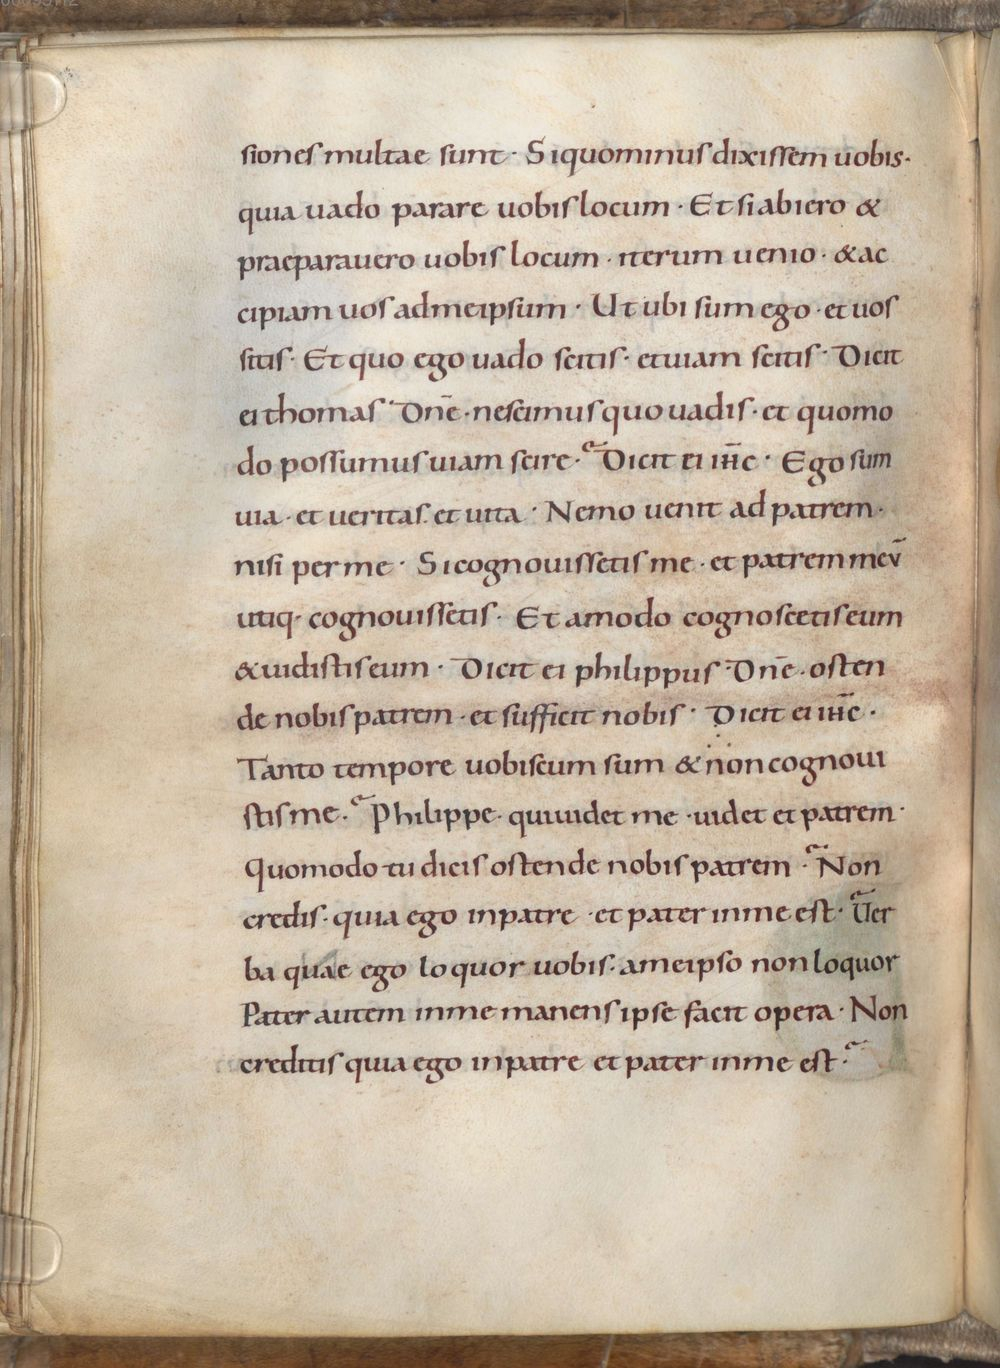 siones multae sunt · Siquominus dixissem uobis·
quia uado parare uobis locum · Et si abiero &
praeparauero uobis locum · iterum uenio · & ac
cipiam uos ad meipsum · Ut ubi sum ego · et uos
sitis · Et quo ego uado scitis · et uiam scitis · Dicit
ei thomas · Dn̄e · nescimus quo uadis · et quomo
do possumus uiam scire · Dicit ei ih̄c · Ego sum
uia · et ueritas · et uita · Nemo uenit ad patrem ·
nisi per me · Si cognouissetis me · et patrem meū
utiq· cognouissetis · Et amodo cognoscetis eum
& uidistis eum · Dicit ei philippus · Dn̄e · osten
de nobis patrem · et sufficit nobis · Dicit ei ih̄c ·
Tanto tempore uobiscum sum & non cognoui
stis me · Philippe · qui uidet me · uidet et patrem ·
Quomodo tu dicis ostende nobis patrem · Non
credis · quia ego in patre · et pater in me est · Uer
ba quae ego loquor uobis · a meipso non loquor
Pater autem in me manens ipse facit opera · Non
creditis quia ego in patre et pater in me est ·